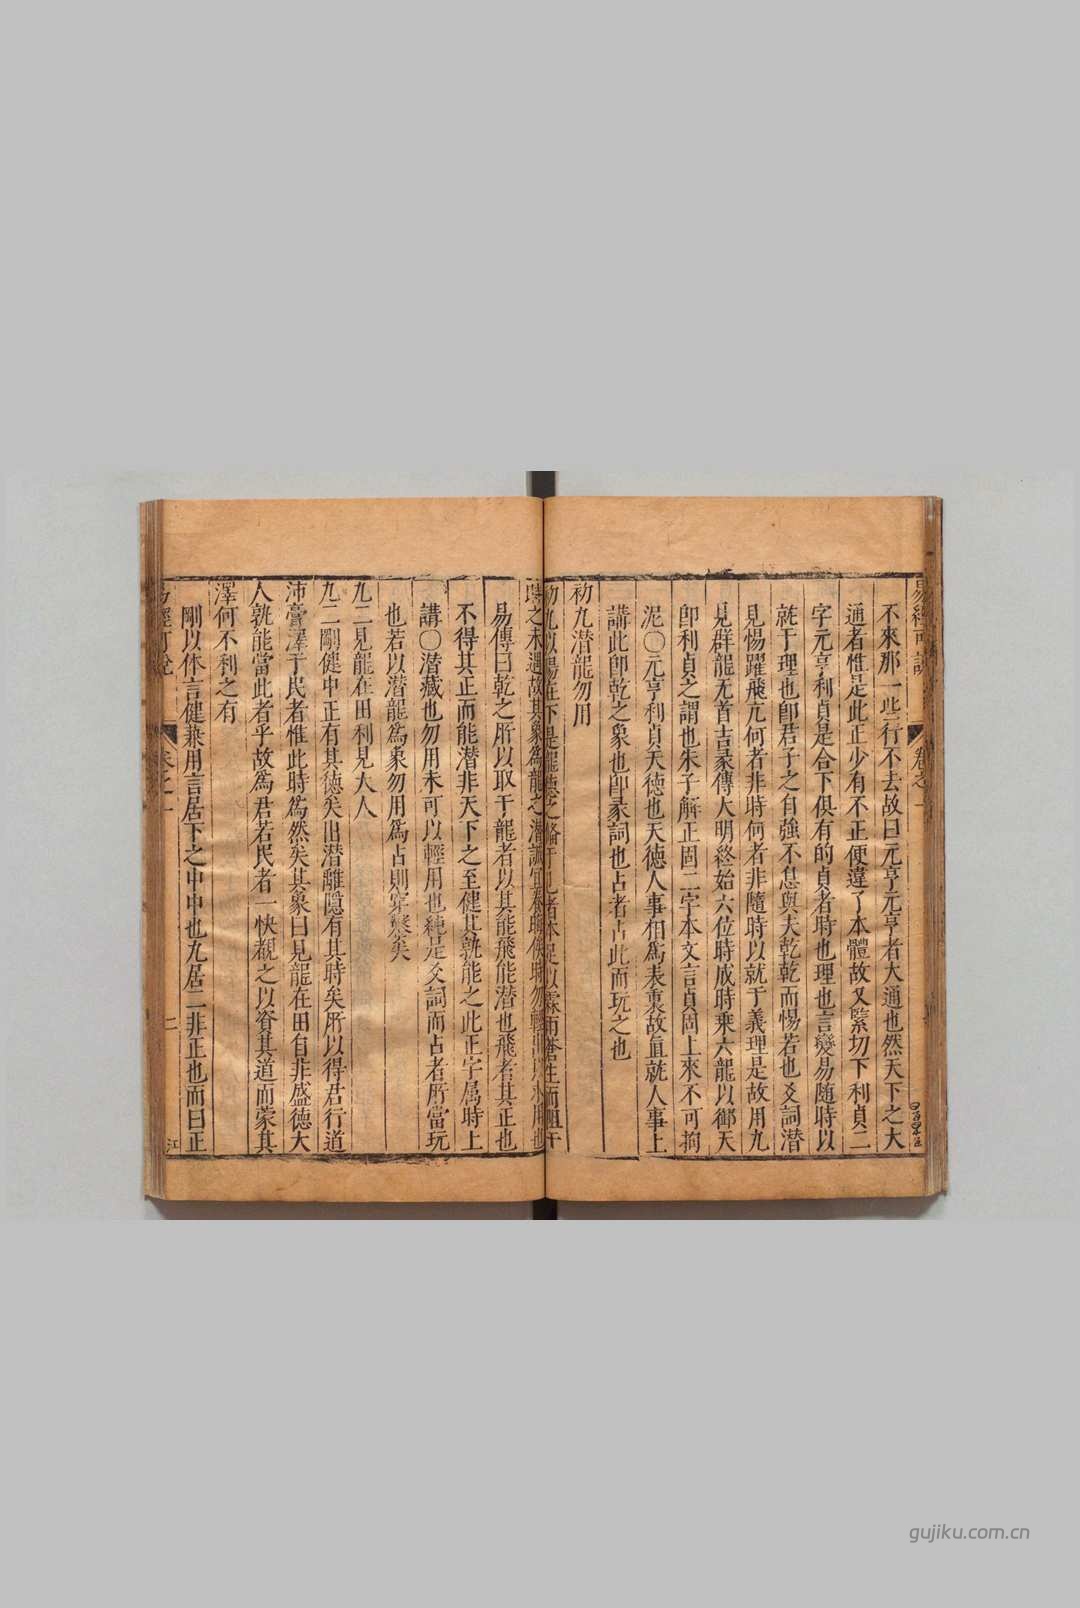 易經可說 卷之一
不來那一些行不去故曰元亨元亨者大通也然天下之大
通者惟是此正少有不正便違了本體故又緊切下利貞二
字元亨利貞是合下俱有的貞者時也理也言變易随時以
就于理也卽君子之自強不息與夫乾乾而惕若也爻詞潜
見惕躍飛亢何者非時何者非隨時以就于義理是故用九
見群龍无首吉彖傳大明終始六位時成時乘六龍以御天
卽利貞之謂也朱子解正固二字本文言貞固上來不可拘
泥○元亨利貞天德也天德人事相為表裏故直就人事上
講此卽乾之象也卽彖詞也占者占此而玩之也
初九潜龍勿用
初九以陽在下是龍德之脩于己者本足以霖雨蒼生而阻于
時之未遇故其象爲龍之潜誠宜養晦俟時勿輕用也
易傳曰乾之所以取干龍者以其能飛能潜也飛者其正也
不得其正而能潜非天下之至健其孰能之此正字属時上
講○潜藏也勿用未可以輕用也純是爻詞而占者所當玩
也若以潜龍爲象勿用爲占則穿鑿矣
九二見龍在田利見大人
九二剛健中正有其德矣出潜離隱有其時矣所以得君行道
沛膏澤于民者惟此時爲然矣其象曰見龍在田自非盛德大
人孰能當此者乎故爲君若民者一快覩之以資其道而蒙其
澤何不利之有
剛以体言健兼用言居下之中中也九居二非正也而曰正
易經可說 卷之一 二 江
gujiku.com.cn